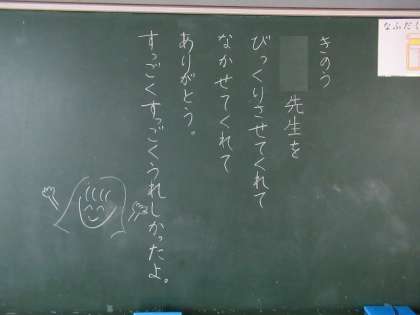 きのう
先生を
びっくりさせてくれて
なかせてくれて
ありがとう。
すっごくすっごくうれしかったよ。
なふだ